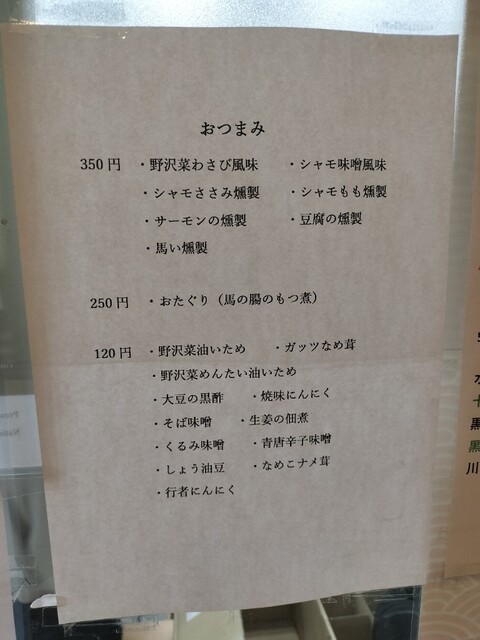 おつまみ
350 円 ・野沢菜わさび風味 ・シャモ味噌風味
・シャモささみ燻製 ・シャモもも燻製
・サーモンの燻製 ・豆腐の燻製
・馬い燻製
250 円 ・おたぐり（馬の腸のもつ煮）
120 円 ・野沢菜油いため ・ガッツなめ茸
・野沢菜めんたい油いため
・大豆の黒酢 ・焼味にんにく
・そば味噌 ・生姜の佃煮
・くるみ味噌 ・青唐辛子味噌
・しょう油豆 ・なめこナメ茸
・行者にんにく
黒
川